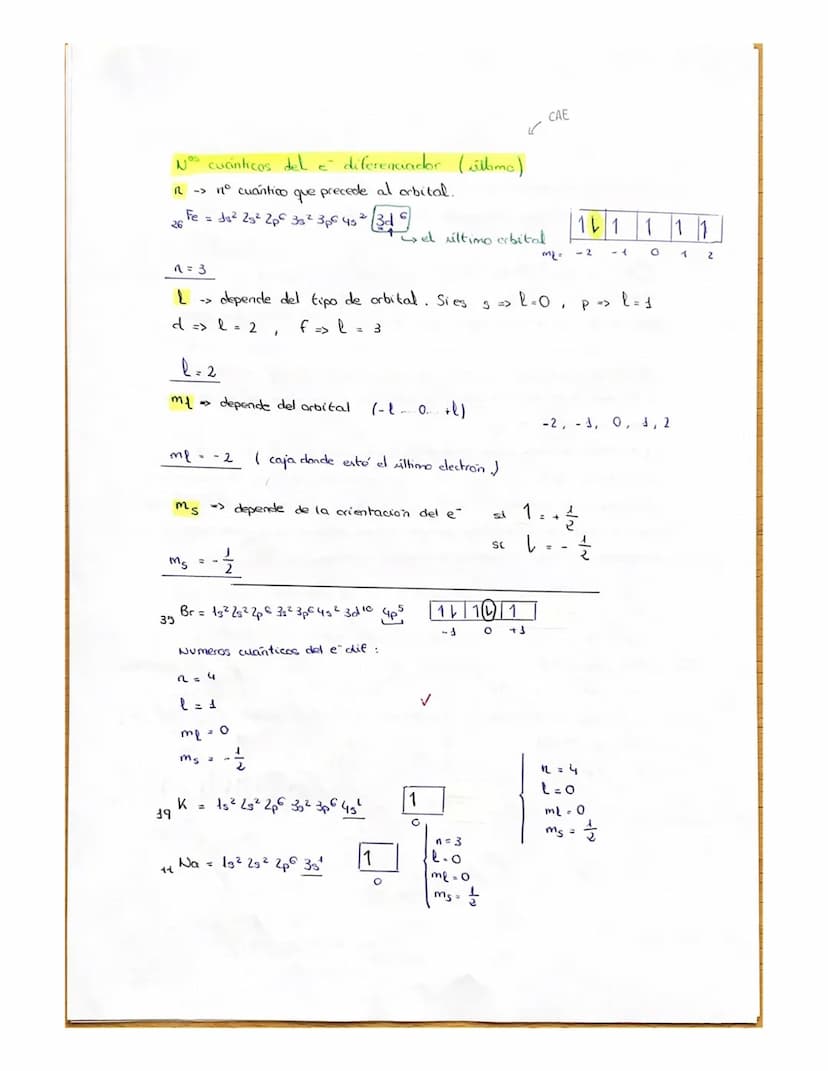 CAE
Nos cuánticos del e- diferenciador (último)
n -> nº cuántico que precede al orbital.
26 Fe = 1s² 2s² 2p⁶ 3s² 3p⁶ 4s² 3d⁶
↳ el último orbital
1 ⇂ | 1 | 1 | 1 | 1
ml= -2 -1 0 1 2
n = 3
l -> depende del tipo de orbital. Si es s => l=0, p => l=1
d => l = 2, f => l = 3
l = 2
ml => depende del orbital (-l ... 0... +l)
-2, -1, 0, 1, 2
ml = -2 (caja donde esté el último electrón)
ms -> depende de la orientación del e-
si 1 = + 1/2
si ⇂ = - 1/2
ms = - 1/2
35 Br = 1s² 2s² 2p⁶ 3s² 3p⁶ 4s² 3d¹⁰ 4p⁵
1 ⇂ | 1 ⇂ | 1
-1 0 +1
Numeros cuánticos del e- dif :
n = 4
l = 1
ml = 0
ms = - 1/2
✓
19 K = 1s² 2s² 2p⁶ 3s² 3p⁶ 4s¹
1
0
n = 4
l = 0
ml = 0
ms = 1/2
11 Na = 1s² 2s² 2p⁶ 3s¹
1
0
n = 3
l = 0
ml = 0
ms = 1/2